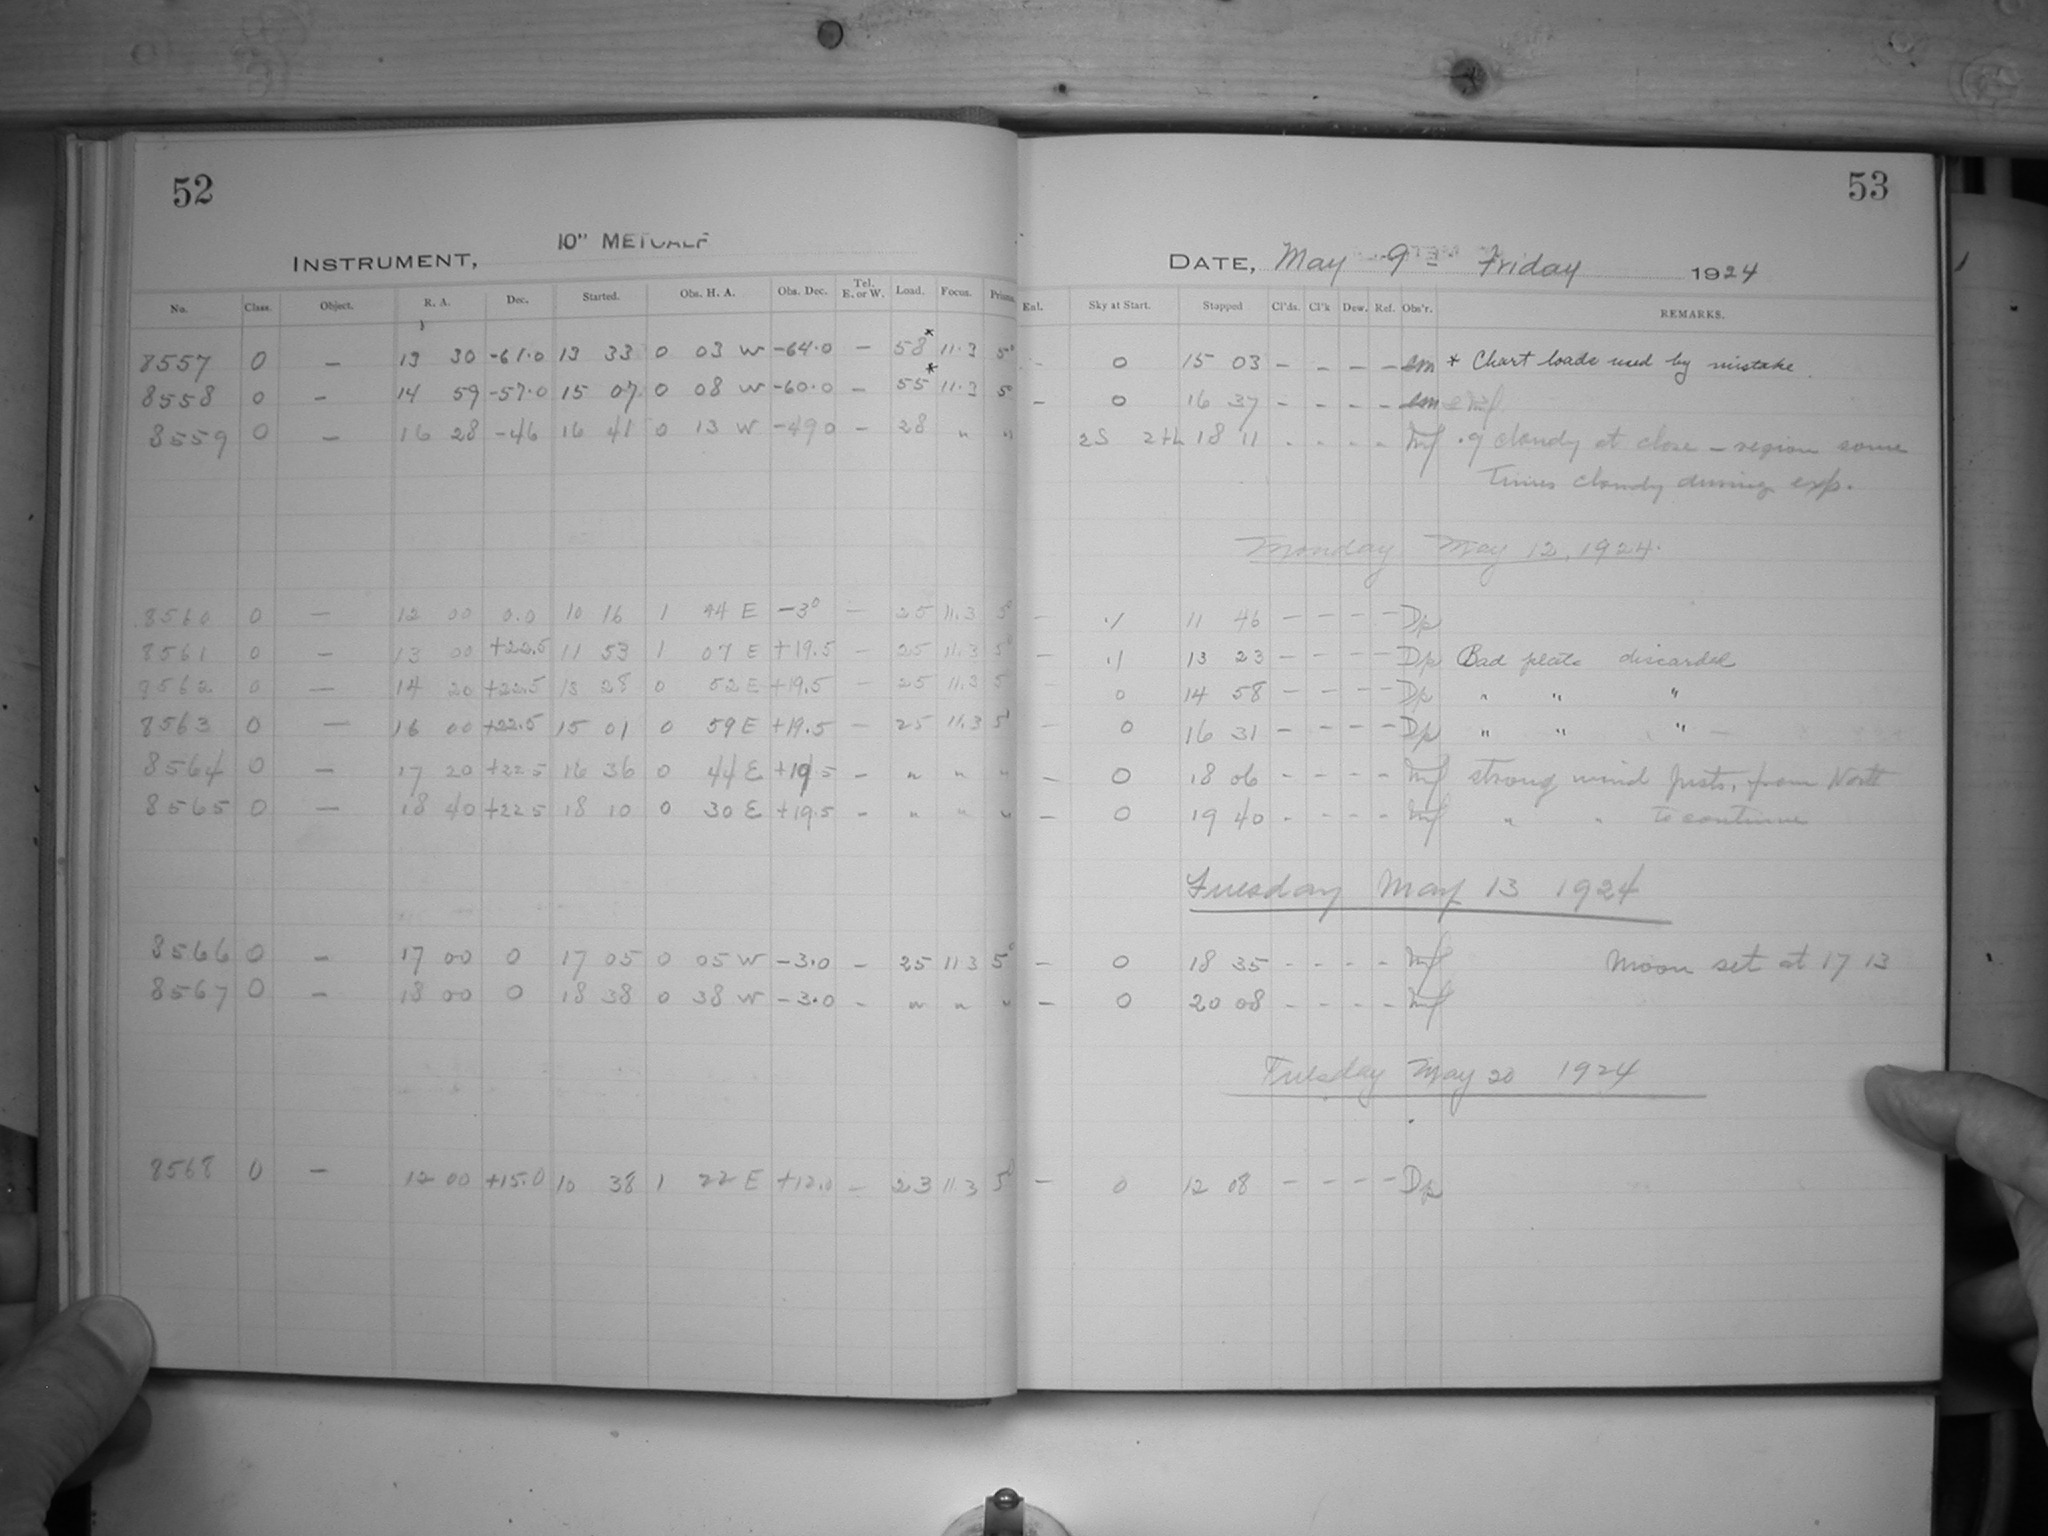 52
53
INSTRUMENT, 10" METCALF
DATE, May 9 Friday 1924
No. Class. Object. R. A. Dec. Started. Obs. H. A. Obs. Dec. Tel. E. or W. Load. Focus. Prisms. Enl. Sky at Start. Stopped Cl'ds. Cl'k Dew. Ref. Obs'r. REMARKS.
8557 0 — 13 30 -61.0 13 33 0 03 W -64.0 — 58* 11.3 5° - 0 15 03 - - - - em * Chart loads used by mistake.
8558 0 - 14 59 -57.0 15 07 0 08 W -60.0 - 55* 11.3 5° - 0 16 37 - - - - em
8559 0 - 16 28 -46 16 41 0 13 W -49 0 - 28 " " 2S 2th 18 11 - - - - mf .9 cloudy at close - region some
times cloudy during exp.
Monday May 12, 1924.
8560 0 — 12 00 0.0 10 16 1 44 E -3° — 25 11.3 5° - .1 11 46 - - - - Dp
8561 0 - 13 00 +22.5 11 53 1 07 E +19.5 - 25 11.3 5° - .1 13 23 - - - - Dp Bad plate discarded
8562 0 - 14 20 +22.5 13 28 0 52 E +19.5 - 25 11.3 5 - 0 14 58 - - - - Dp " " "
8563 0 — 16 00 +22.5 15 01 0 59 E +19.5 - 25 11.3 5° - 0 16 31 - - - - Dp " " "
8564 0 - 17 20 +22.5 16 36 0 44 E +19.5 - " " " - 0 18 06 - - - - mf strong wind gusts, from North
8565 0 - 18 40 +22.5 18 10 0 30 E +19.5 - " " " - 0 19 40 - - - - mf " " to continue
Tuesday May 13 1924
8566 0 - 17 00 0 17 05 0 05 W -3.0 - 25 11 3 5° - 0 18 35 - - - - mf Moon set at 17 13
8567 0 - 18 00 0 18 38 0 38 W -3.0 - " " " - 0 20 08 - - - - mf
Tuesday May 20 1924
8568 0 - 12 00 +15.0 10 38 1 22 E +12.0 - 23 11 3 5° - 0 12 08 - - - - Dp